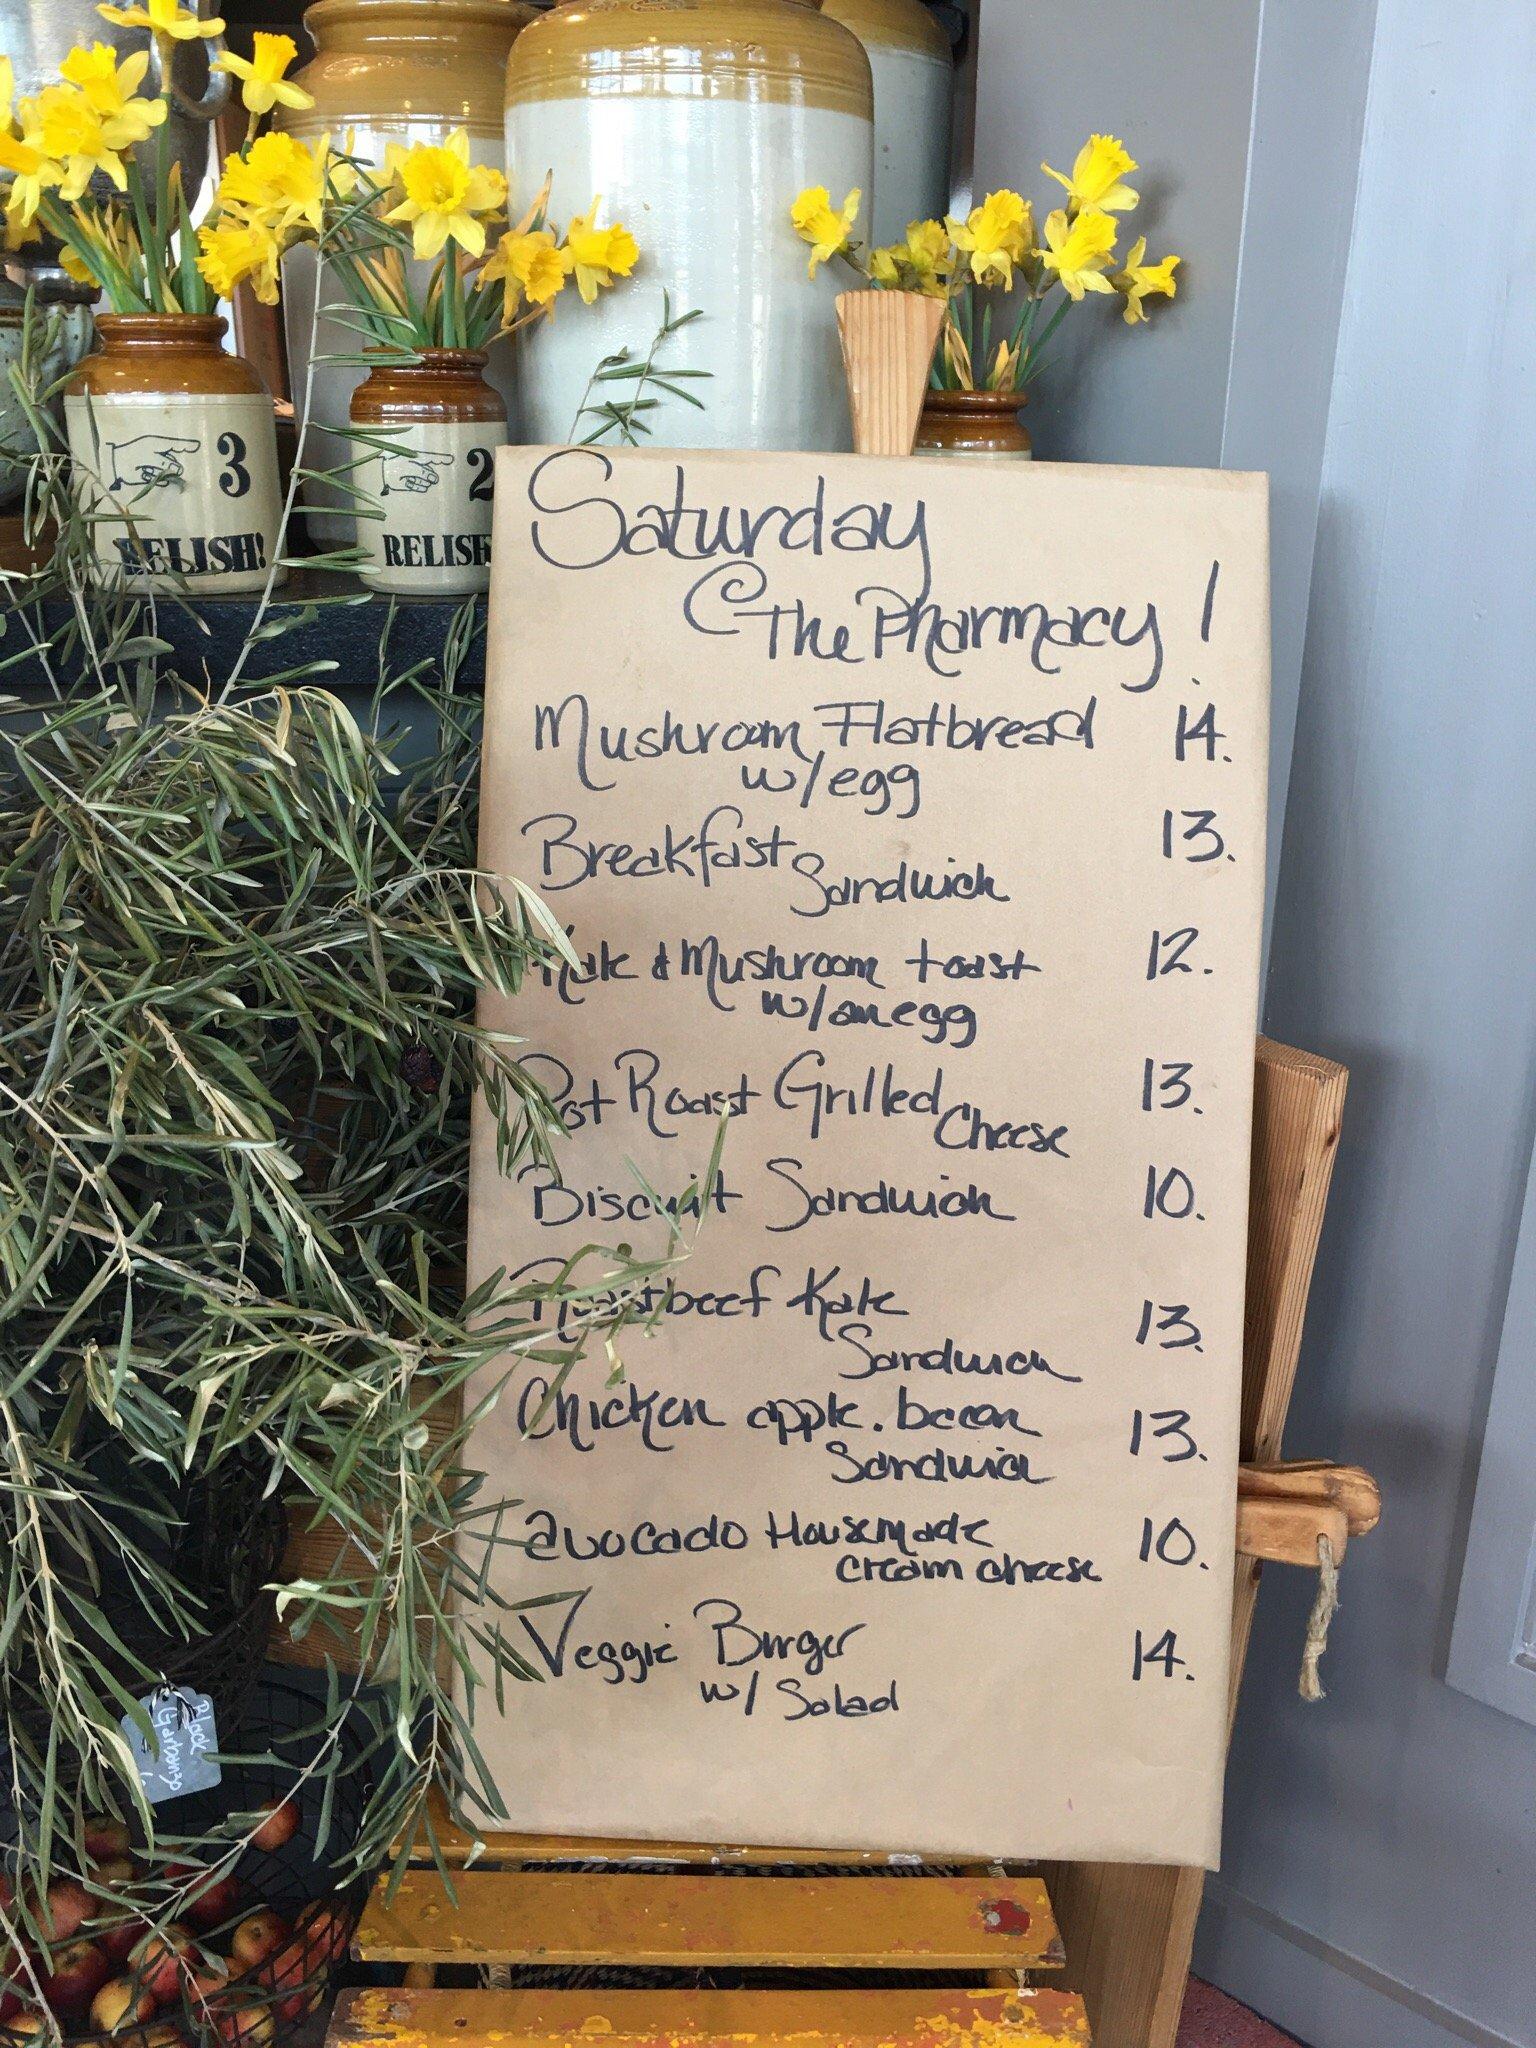 3
RELISH!
2
RELISH
Saturday
@ The Pharmacy!
Mushroom Flatbread 14.
w/egg
Breakfast 13.
Sandwich
Kale & Mushroom toast 12.
w/an egg
Pot Roast Grilled 13.
Cheese
Biscuit Sandwich 10.
Roastbeef Kale
Sandwich 13.
Chicken apple. bacon 13.
Sandwich
avocado Housemade 10.
cream cheese
Veggie Burger 14.
w/ Salad
Black
Garbanzo